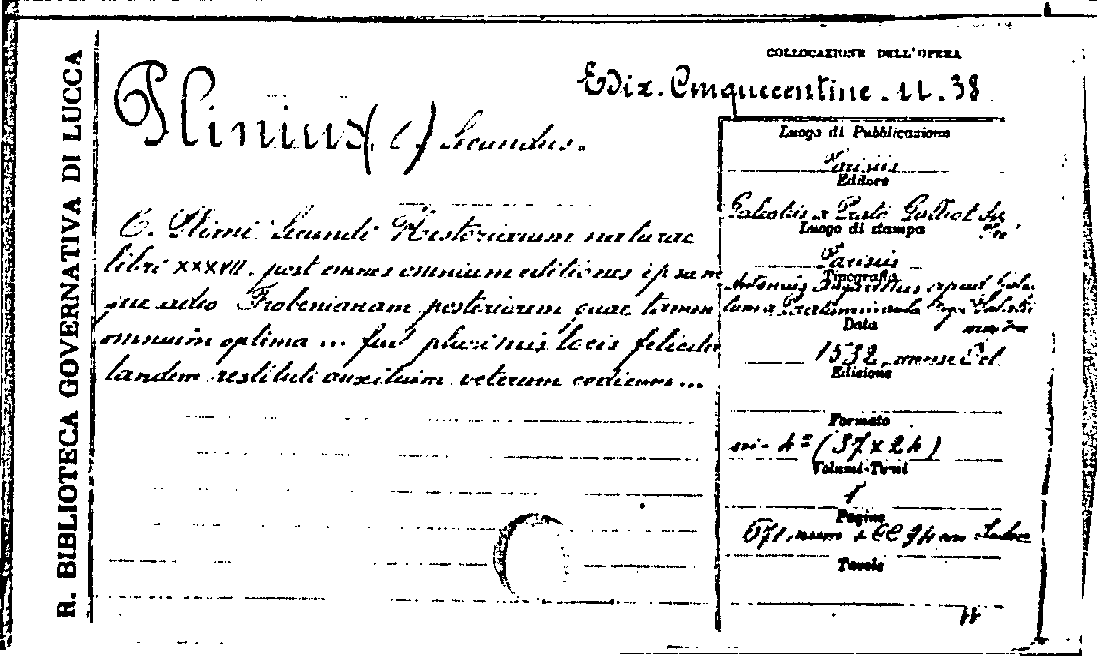 R. BIBLIOTECA GOVERNATIVA DI LUCCA
COLLOCAZIONE DELL'OPERA
Ediz. Cinquecentine. 11. 38
Plinius (C) Secundus.
C. Plinii Secundi Historiarum naturae
libri XXXVII. post omnes omnium editiones ipsam
que adeo Frobenianam posteriorem quae tamen
omnium optima ... plurimis locis feliciter
tandem restituti auxilium veterum codicum ...
Luogo di Pubblicazione
Parisiis
Editore
Galeotus a Prato
Luogo di stampa
Parisiis
Tipografia
Antonius apud
Data
1532, mense
Edizione
Formato
in-4º (37x24)
Volumi-Tomi
1
Pagine
Tavole